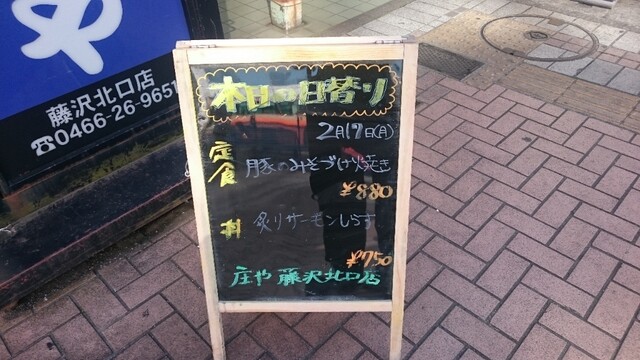 や
藤沢北口店
☎0466-26-9651
本日の日替り
2月17日(月)
定食
豚のみそづけ焼き
¥880
丼
炙りサーモンしらす
¥750
庄や 藤沢北口店